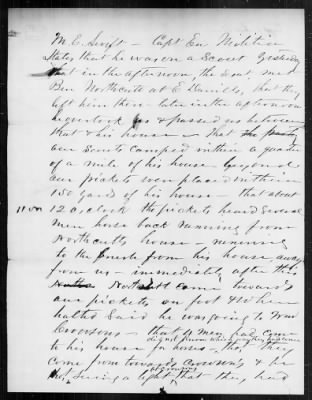 M. C. Swift — Capt En Militia
States that he was on a Scout yesterday
that in the afternoon, the Scout, met
Ben Northcutt at C Daniels, that they
left him there later in the afternoon
he overtook us & passed us between
that & his house — That the
our Scouts camped within a quarter
of a mile of his house beyond
our pickets were placed within
150 yards of his house — that about
11 or
12 o,clock the pickets heard Several
men horse back running from
Northcutts house running
to the from his house away
from us — immediately after this
Northcutt came towards
our pickets on foot & when
halted Said he was going to
— that 4 men had come
to his house for horses — that they
come from towards & he
seeing a light that they had